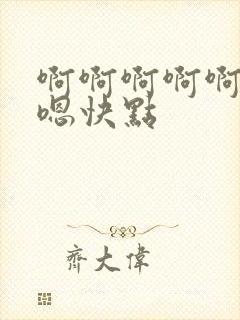 啊啊啊啊啊
嗯快點
齊大偉